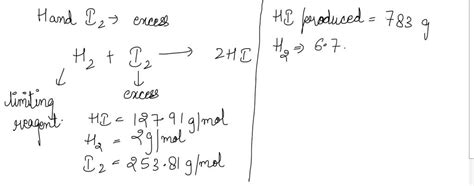 Hand I₂ → excess
H₂ + I₂ → 2HI
limiting reagent.
excess
HI = 127.91 g/mol
H₂ = 2g/mol
I₂ = 253.81 g/mol
HI produced = 783 g
H₂ ⇒ 6.7.